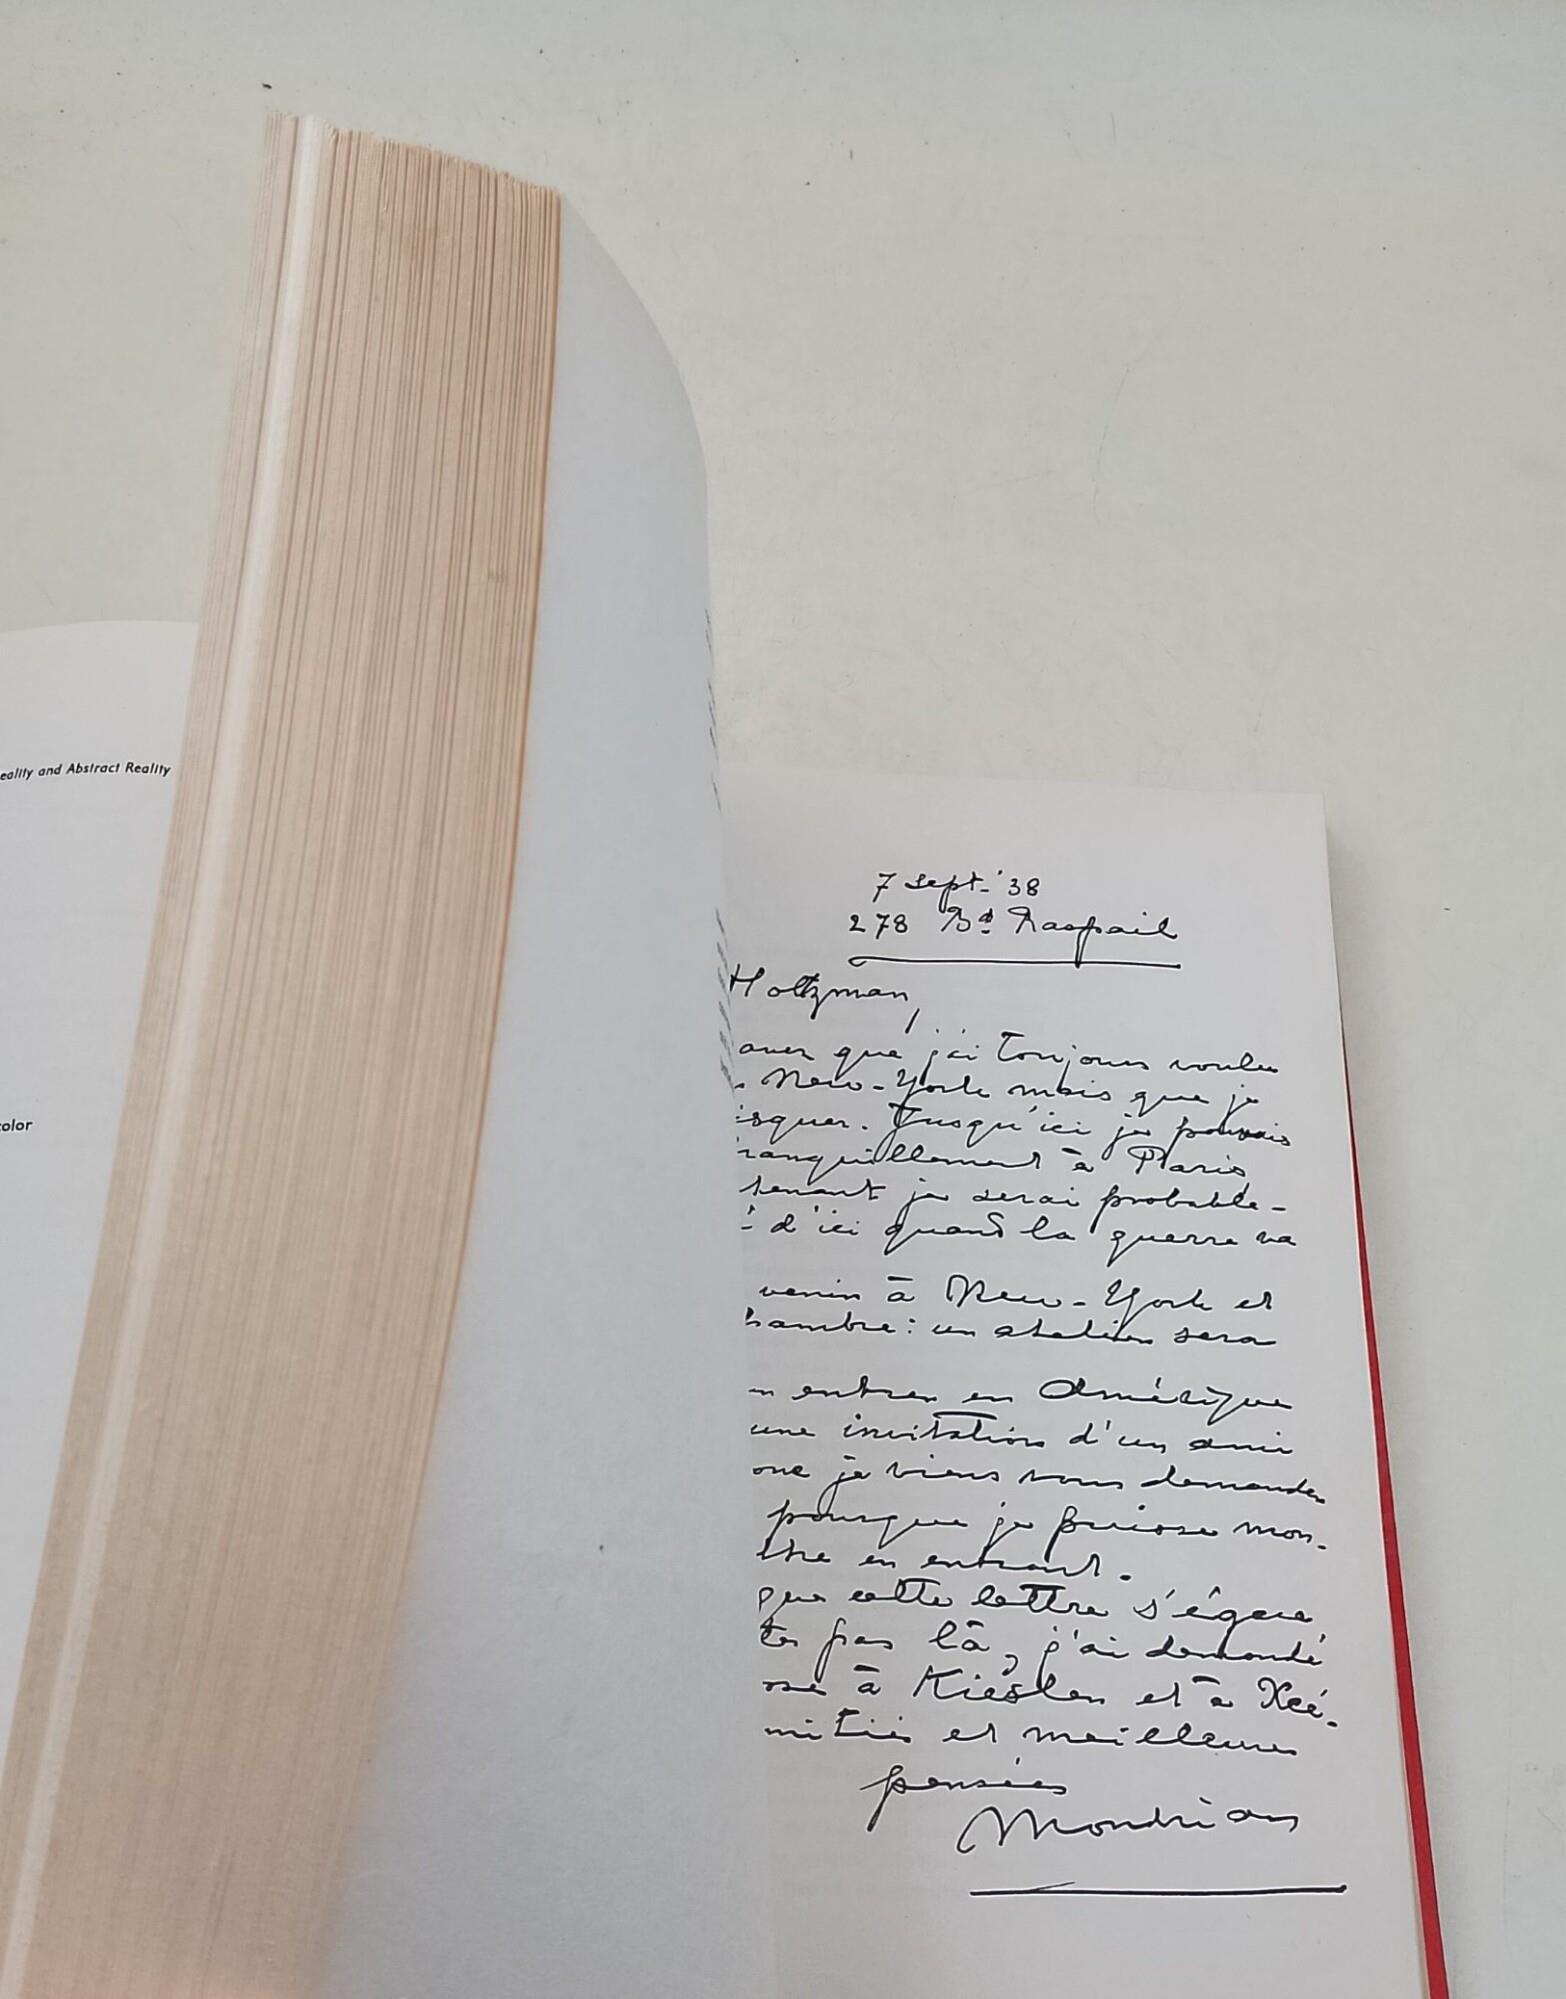 eality and Abstract Reality
color
7 sept. '38
278 Bd Raspail
Holtzman,
avez que j'ai toujours voulu
New-York mais que je
isquer. Jusqu'ici je pouvais
ranquillement à Paris
tenant je serai probable-
d'ici quand la guerre va
venir à New-York et
hambre: un atelier sera
n entrer en Amérique
une invitation d'un ami
onc je viens vous demander
pourque je puisse mon-
ttre en entrant.
que cette lettre s'égare
tes pas là, j'ai demandé
ose à Kiesler et à Xcé-
mitiés et meilleures
pensées
Mondrian